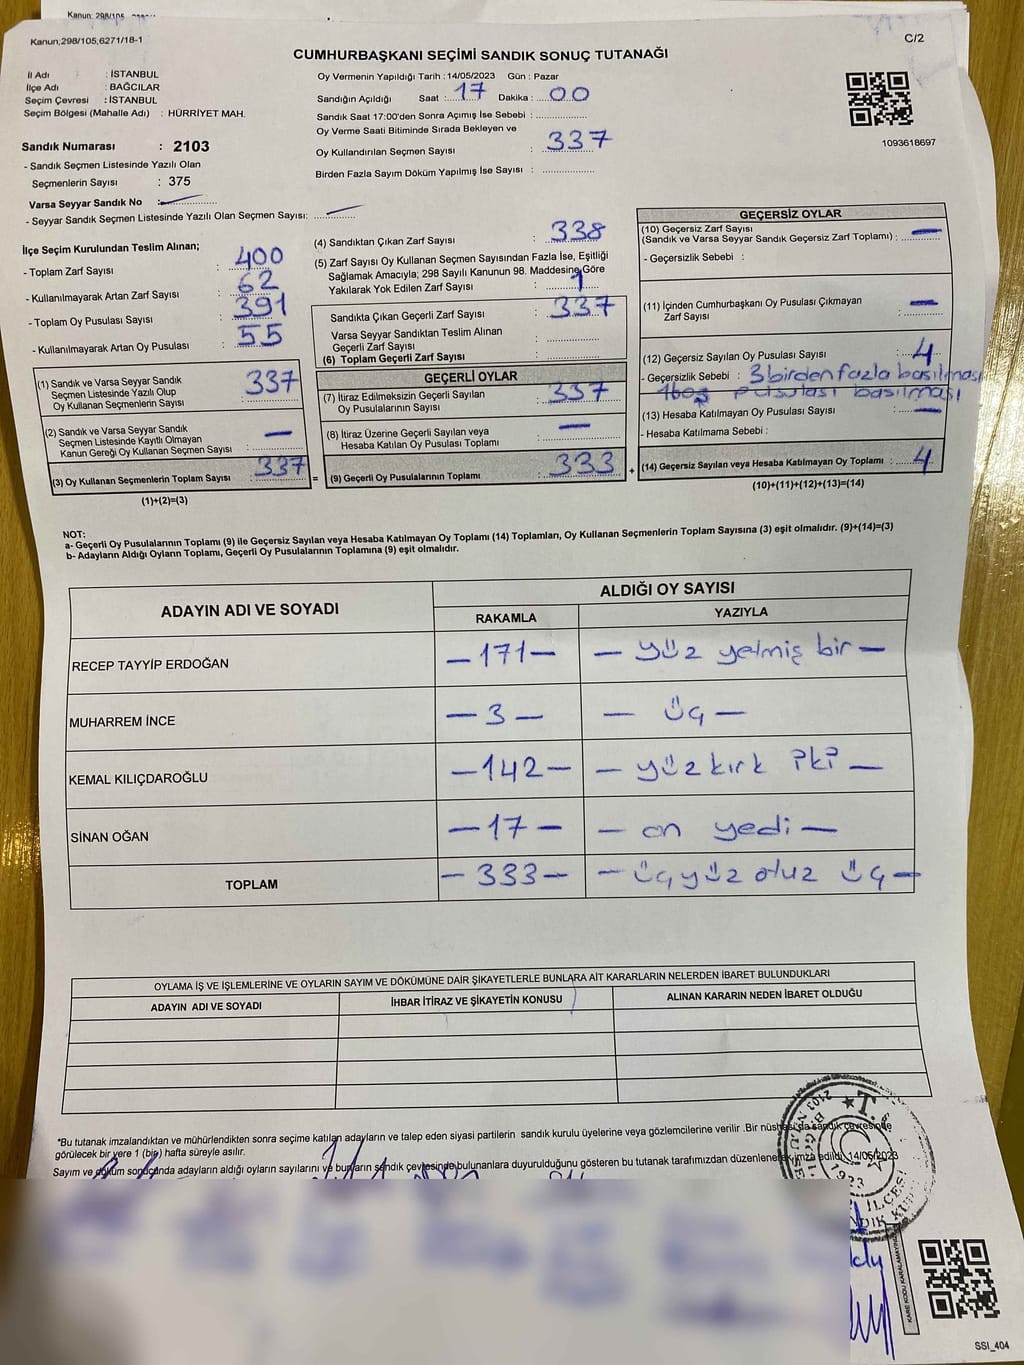 Kanun: 298/105
Kanun;298/105,6271/18-1
C/2
CUMHURBAŞKANI SEÇİMİ SANDIK SONUÇ TUTANAĞI
İl Adı : İSTANBUL
İlçe Adı : BAĞCILAR
Seçim Çevresi : İSTANBUL
Seçim Bölgesi (Mahalle Adı) : HÜRRİYET MAH.
Sandık Numarası : 2103
- Sandık Seçmen Listesinde Yazılı Olan
Seçmenlerin Sayısı : 375
Varsa Seyyar Sandık No :
- Seyyar Sandık Seçmen Listesinde Yazılı Olan Seçmen Sayısı:
Oy Vermenin Yapıldığı Tarih : 14/05/2023 Gün : Pazar
Sandığın Açıldığı Saat : 17 Dakika : 00
Sandık Saat 17:00'den Sonra Açımış İse Sebebi :
Oy Verme Saati Bitiminde Sırada Bekleyen ve
Oy Kullandırılan Seçmen Sayısı : 337
Birden Fazla Sayım Döküm Yapılmış İse Sayısı :
1093618697
İlçe Seçim Kurulundan Teslim Alınan;
- Toplam Zarf Sayısı : 400
- Kullanılmayarak Artan Zarf Sayısı : 62
- Toplam Oy Pusulası Sayısı : 391
- Kullanılmayarak Artan Oy Pusulası : 55
(1) Sandık ve Varsa Seyyar Sandık
Seçmen Listesinde Yazılı Olup
Oy Kullanan Seçmenlerin Sayısı : 337
(2) Sandık ve Varsa Seyyar Sandık
Seçmen Listesinde Kayıtlı Olmayan
Kanun Gereği Oy Kullanan Seçmen Sayısı : —
(3) Oy Kullanan Seçmenlerin Toplam Sayısı : 337
(1)+(2)=(3)
(4) Sandıktan Çıkan Zarf Sayısı : 338
(5) Zarf Sayısı Oy Kullanan Seçmen Sayısından Fazla İse, Eşitliği
Sağlamak Amacıyla; 298 Sayılı Kanunun 98. Maddesine Göre
Yakılarak Yok Edilen Zarf Sayısı : 1
Sandıkta Çıkan Geçerli Zarf Sayısı : 337
Varsa Seyyar Sandıktan Teslim Alınan
Geçerli Zarf Sayısı :
(6) Toplam Geçerli Zarf Sayısı :
GEÇERLİ OYLAR
(7) İtiraz Edilmeksizin Geçerli Sayılan
Oy Pusulalarının Sayısı : 337
(8) İtiraz Üzerine Geçerli Sayılan veya
Hesaba Katılan Oy Pusulası Toplamı : —
= (9) Geçerli Oy Pusulalarının Toplamı : 333 +
GEÇERSİZ OYLAR
(10) Geçersiz Zarf Sayısı
(Sandık ve Varsa Seyyar Sandık Geçersiz Zarf Toplamı) : —
- Geçersizlik Sebebi :
(11) İçinden Cumhurbaşkanı Oy Pusulası Çıkmayan
Zarf Sayısı : —
(12) Geçersiz Sayılan Oy Pusulası Sayısı : 4
- Geçersizlik Sebebi : 3 birden fazla basılması
1 boş pusulası basılması
(13) Hesaba Katılmayan Oy Pusulası Sayısı : —
- Hesaba Katılmama Sebebi :
(14) Geçersiz Sayılan veya Hesaba Katılmayan Oy Toplamı : 4
(10)+(11)+(12)+(13)=(14)
NOT:
a- Geçerli Oy Pusulalarının Toplamı (9) ile Geçersiz Sayılan veya Hesaba Katılmayan Oy Toplamı (14) Toplamları, Oy Kullanan Seçmenlerin Toplam Sayısına (3) eşit olmalıdır. (9)+(14)=(3)
b- Adayların Aldığı Oyların Toplamı, Geçerli Oy Pusulalarının Toplamına (9) eşit olmalıdır.
ADAYIN ADI VE SOYADI
ALDIĞI OY SAYISI
RAKAMLA YAZIYLA
RECEP TAYYİP ERDOĞAN —171— — yüz yetmiş bir —
MUHARREM İNCE — 3 — — üç —
KEMAL KILIÇDAROĞLU —142— — yüz kırk iki —
SİNAN OĞAN —17— — on yedi —
TOPLAM —333— — üç yüz otuz üç —
OYLAMA İŞ VE İŞLEMLERİNE VE OYLARIN SAYIM VE DÖKÜMÜNE DAİR ŞİKAYETLERLE BUNLARA AİT KARARLARIN NELERDEN İBARET BULUNDUKLARI
ADAYIN ADI VE SOYADI İHBAR İTİRAZ VE ŞİKAYETİN KONUSU ALINAN KARARIN NEDEN İBARET OLDUĞU
*Bu tutanak imzalandıktan ve mühürlendikten sonra seçime katılan adayların ve talep eden siyasi partilerin sandık kurulu üyelerine veya gözlemcilerine verilir .Bir nüshesi'da sandık çevresinde
görülecek bir yere 1 (bir) hafta süreyle asılır.
Sayım ve döküm sonucunda adayların aldığı oyların sayılarını ve bunların sandık çevresinde bulunanlara duyurulduğunu gösteren bu tutanak tarafımızdan düzenlenerek imza edildi. 14/05/2023
2103
T.
1923
İLÇESİ
KARE KODU KARALAMAYINIZ
SSI_404